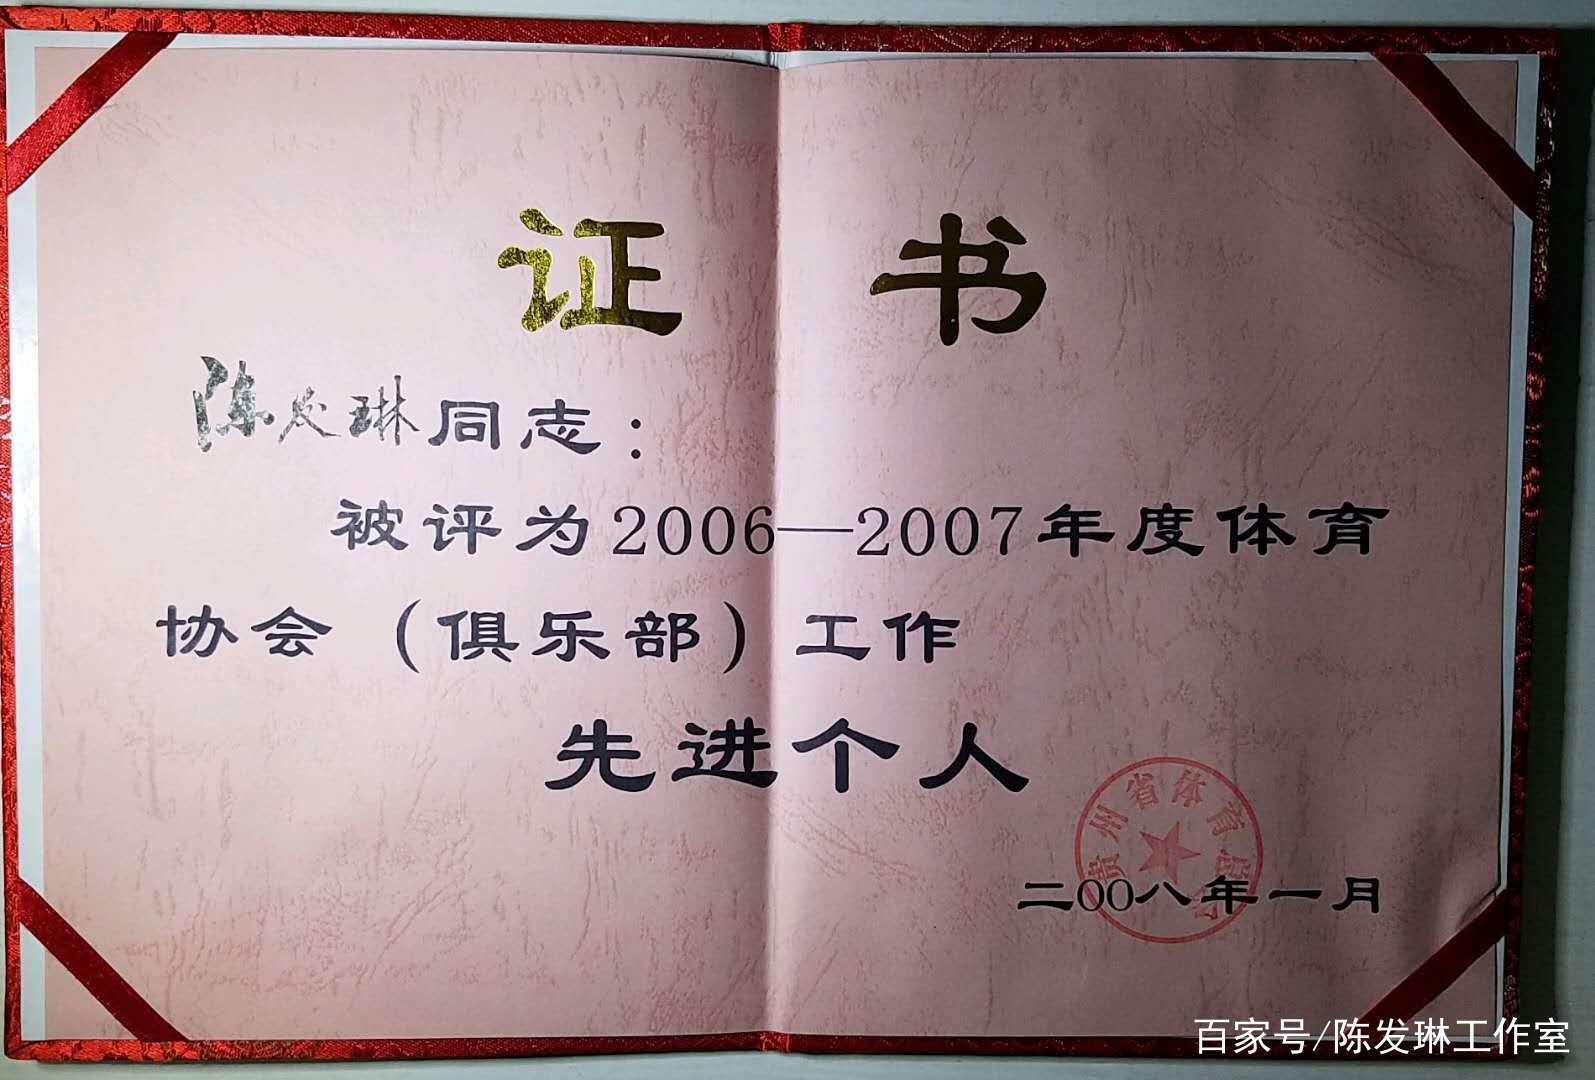 证 书
陈发琳同志：
被评为2006—2007年度体育
协会（俱乐部）工作
先进个人
贵州省体育总会
二〇〇八年一月
百家号/陈发琳工作室